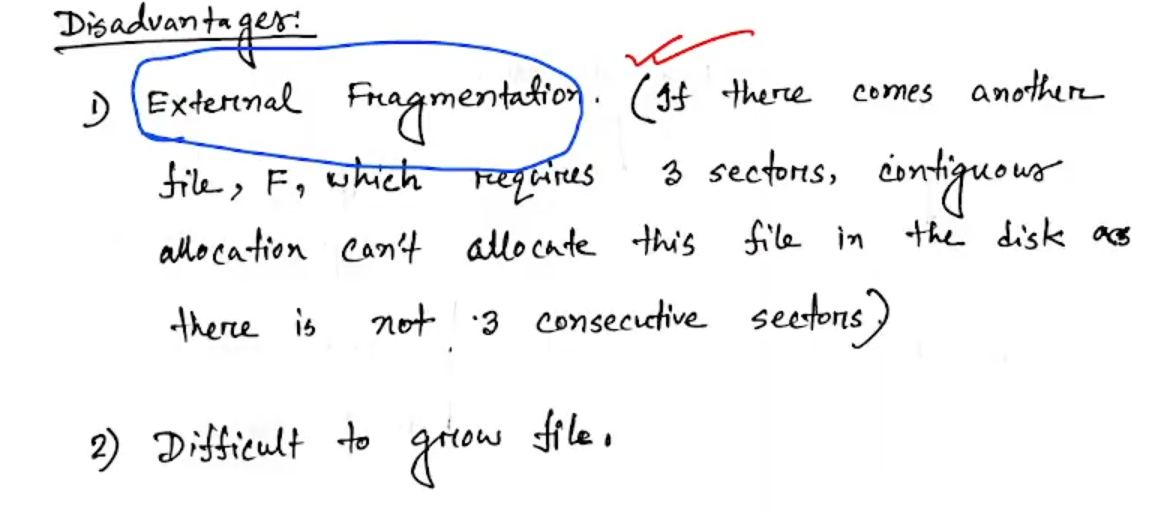 Disadvantages:
1) External Fragmentation. (If there comes another
file, F, which requires 3 sectors, contiguous
allocation can't allocate this file in the disk as
there is not 3 consecutive sectors)
2) Difficult to grow file.